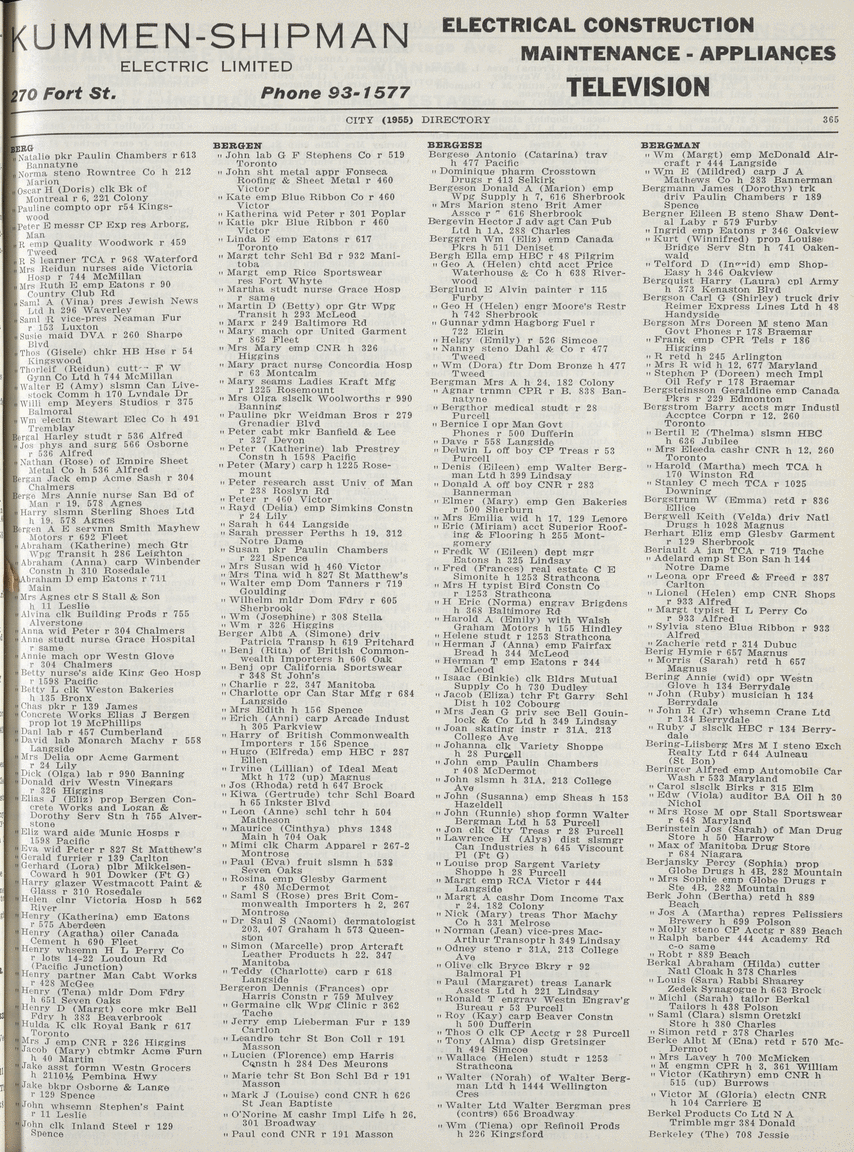 KUMMEN-SHIPMAN
ELECTRIC LIMITED
270 Fort St. Phone 93-1577
ELECTRICAL CONSTRUCTION
MAINTENANCE - APPLIANCES
TELEVISION
CITY (1955) DIRECTORY 365
BERG
" Natalie pkr Paulin Chambers r 613
Bannatyne
" Norma steno Rowntree Co h 212
Marion
" Oscar H (Doris) clk Bk of
Montreal r 6, 221 Colony
" Pauline compto opr r54 Kings-
wood
" Peter E messr CP Exp res Arborg,
Man
" R emp Quality Woodwork r 459
Tweed
" R S learner TCA r 968 Waterford
" Mrs Reidun nurses aide Victoria
Hosp r 744 McMillan
" Mrs Ruth E emp Eatons r 90
Country Club Rd
" Saml A (Vina) pres Jewish News
Ltd h 296 Waverley
" Saml R vice-pres Neaman Fur
r 153 Luxton
" Susie maid DVA r 260 Sharpe
Blvd
" Thos (Gisele) chkr HB Hse r 54
Kingswood
" Thorleif (Reidun) cutt F W
Gynn Co Ltd h 744 McMillan
" Walter E (Amy) slsmn Can Live-
stock Comm h 170 Lyndale Dr
" Willi emp Meyers Studios r 375
Balmoral
" Wm electn Stewart Elec Co h 491
Tremblay
Bergal Harley studt r 536 Alfred
" Jos phys and surg 566 Osborne
r 536 Alfred
" Nathan (Rose) of Empire Sheet
Metal Co h 536 Alfred
Bergan Jack emp Acme Sash r 304
Chalmers
Berge Mrs Annie nurse San Bd of
Man r 19, 578 Agnes
" Harry slsmn Sterling Shoes Ltd
h 19, 578 Agnes
Bergen A E servmn Smith Mayhew
Motors r 692 Fleet
" Abraham (Katherine) mech Gtr
Wpg Transit h 286 Leighton
" Abraham (Anna) carp Winbender
Constn h 310 Rosedale
" Abraham D emp Eatons r 711
Main
" Mrs Agnes ctr S Stall & Son
h 11 Leslie
" Alvina clk Building Prods r 755
Alverstone
" Anna wid Peter r 304 Chalmers
" Anne studt nurse Grace Hospital
r same
" Annie mach opr Westn Glove
r 304 Chalmers
" Betty nurse's aide King Geo Hosp
r 1598 Pacific
" Betty L clk Weston Bakeries
h 135 Bronx
" Chas pkr r 139 James
" Concrete Works Elias J Bergen
prop lot 19 McPhillips
" Danl lab r 457 Cumberland
" David lab Monarch Machy r 558
Langside
" Mrs Delia opr Acme Garment
r 24 Lily
" Dick (Olga) lab r 990 Banning
" Donald driv Western Vinegars
r 326 Higgins
" Elias J (Eliz) prop Bergen Con-
crete Works and Logan &
Dorothy Serv Stn h 755 Alver-
stone
" Eliz ward aide Munic Hosps r
1598 Pacific
" Eva wid Peter r 827 St Matthew's
" Gerald furrier r 139 Carlton
" Gerhard (Lora) plbr Mikkelsen-
Coward h 901 Dowker (Ft G)
" Harry glazer Westmacott Paint &
Glass r 310 Rosedale
" Helen clnr Victoria Hosp h 562
River
" Henry (Katherina) emp Eatons
r 575 Aberdeen
" Henry (Agatha) oiler Canada
Cement h 690 Fleet
" Henry whsemn H L Perry Co
r lots 14-22 Loudoun Rd
(Pacific Junction)
" Henry partner Man Cabt Works
r 428 McGee
" Henry (Tena) mldr Dom Fdry
h 651 Seven Oaks
" Henry D (Margt) core mkr Bell
Fdry h 383 Beaverbrook
" Hulda K clk Royal Bank r 617
Toronto
" Mrs J emp CNR r 326 Higgins
" Jacob (Mary) cbtmkr Acme Furn
h 40 Martin
" Jake asst formn Westn Grocers
h 2110½ Pembina Hwy
" Jake bkpr Osborne & Lange
r 129 Spence
" John whsemn Stephen's Paint
r 11 Leslie
" John clk Inland Steel r 129
Spence
BERGEN
" John lab G F Stephens Co r 519
Toronto
" John sht metal appr Fonseca
Roofing & Sheet Metal r 460
Victor
" Kate emp Blue Ribbon Co r 460
Victor
" Katherina wid Peter r 301 Poplar
" Katie pkr Blue Ribbon r 460
Victor
" Linda E emp Eatons r 617
Toronto
" Margt tchr Schl Bd r 932 Mani-
toba
" Margt emp Rice Sportswear
res Fort Whyte
" Martha studt nurse Grace Hosp
r same
" Martin D (Betty) opr Gtr Wpg
Transit h 293 McLeod
" Marx r 249 Baltimore Rd
" Mary mach opr United Garment
r 862 Fleet
" Mrs Mary emp CNR h 326
Higgins
" Mary pract nurse Concordia Hosp
r 63 Montcalm
" Mary seams Ladies Kraft Mfg
r 1225 Rosemount
" Mrs Olga slsclk Woolworths r 990
Banning
" Pauline pkr Weidman Bros r 279
Grenadier Blvd
" Peter cabt mkr Banfield & Lee
r 327 Devon
" Peter (Katherine) lab Prestrey
Constn h 1598 Pacific
" Peter (Mary) carp h 1225 Rose-
mount
" Peter research asst Univ of Man
r 238 Roslyn Rd
" Peter r 460 Victor
" Rayd (Delia) emp Simkins Constn
r 24 Lily
" Sarah h 644 Langside
" Sarah presser Perths h 19, 312
Notre Dame
" Susan pkr Paulin Chambers
r 221 Spence
" Mrs Susan wid h 460 Victor
" Mrs Tina wid h 827 St Matthew's
" Walter emp Dom Tanners r 719
Goulding
" Wilhelm mldr Dom Fdry r 605
Sherbrook
" Wm (Josephine) r 308 Stella
" Wm r 326 Higgins
Berger Albt A (Simone) driv
Patricia Transp h 619 Pritchard
" Benj (Rita) of British Common-
wealth Importers h 606 Oak
" Benj opr California Sportswear
r 348 St John's
" Charlie r 22, 347 Manitoba
" Charlotte opr Can Star Mfg r 684
Langside
" Mrs Edith h 156 Spence
" Erich (Anni) carp Arcade Indust
h 305 Parkview
" Harry of British Commonwealth
Importers r 156 Spence
" Hugo (Elfreda) emp HBC r 287
Ellen
" Irvine (Lillian) of Ideal Meat
Mkt h 172 (up) Magnus
" Jos (Rhoda) retd h 647 Brock
" Kiwa (Gertrude) tchr Schl Board
h 65 Inkster Blvd
" Leon (Anne) schl tchr h 504
Matheson
" Maurice (Cinthya) phys 1348
Main h 704 Oak
" Mimi clk Charm Apparel r 267-2
Montrose
" Paul (Eva) fruit slsmn h 532
Seven Oaks
" Rosina emp Glesby Garment
r 480 McDermot
" Saml S (Rose) pres Brit Com-
monwealth Importers h 2, 267
Montrose
" Dr Saul S (Naomi) dermatologist
203, 407 Graham h 573 Queen-
ston
" Simon (Marcelle) prop Artcraft
Leather Products h 22, 347
Manitoba
" Teddy (Charlotte) carp r 618
Langside
Bergeron Dennis (Frances) opr
Harris Constn r 759 Mulvey
" Germaine clk Wpg Clinic r 362
Tache
" Jerry emp Lieberman Fur r 139
Carlton
" Leandre tchr St Bon Coll r 191
Masson
" Lucien (Florence) emp Harris
Constn h 284 Des Meurons
" Marie tchr St Bon Schl Bd r 191
Masson
" Mark J (Louise) cond CNR h 626
St Jean Baptiste
" O'Norine M cashr Impl Life h 26,
301 Broadway
" Paul cond CNR r 191 Masson
BERGESE
Bergese Antonio (Catarina) trav
h 477 Pacific
" Dominique pharm Crosstown
Drugs r 413 Selkirk
Bergeson Donald A (Marion) emp
Wpg Supply h 7, 616 Sherbrook
" Mrs Marion steno Brit Amer
Assce r " 616 Sherbrook
Bergevin Hector J adv agt Can Pub
Ltd h 1A, 288 Charles
Berggren Wm (Eliz) emp Canada
Pkrs h 511 Deniset
Bergh Ella emp HBC r 48 Pilgrim
" Geo A (Helen) chtd acct Price
Waterhouse & Co h 638 River-
wood
Berglund E Alvin painter r 115
Furby
" Geo H (Helen) engr Moore's Restr
h 742 Sherbrook
" Gunnar ydmn Hagborg Fuel r
722 Elgin
" Helgy (Emily) r 526 Simcoe
" Nanny steno Dahl & Co r 477
Tweed
" Wm (Dora) ftr Dom Bronze h 477
Tweed
Bergman Mrs A h 24, 182 Colony
" Agnar trnmn CPR r B, 838 Ban-
natyne
" Bergthor medical studt r 28
Purcell
" Bernice I opr Man Govt
Phones r 500 Dufferin
" Dave r 558 Langside
" Delwin L off boy CP Treas r 53
Purcell
" Denis (Eileen) emp Walter Berg-
man Ltd h 399 Lindsay
" Donald A off boy CNR r 283
Bannerman
" Elmer (Mary) emp Gen Bakeries
r 500 Sherburn
" Mrs Emilia wid h 17, 129 Lenore
" Eric (Miriam) acct Superior Roof-
ing & Flooring h 255 Mont-
gomery
" Fredk W (Eileen) dept mgr
Eatons h 325 Lindsay
" Fred (Frances) real estate C E
Simonite h 1253 Strathcona
" Mrs H typist Bird Constn Co
r 1253 Strathcona
" H Eric (Norma) engrav Brigdens
h 368 Baltimore Rd
" Harold A (Emily) with Walsh
Graham Motors h 155 Hindley
" Helene studt r 1253 Strathcona
" Herman J (Anna) emp Fairfax
Bread h 344 McLeod
" Herman T emp Eatons r 344
McLeod
" Isaac (Binkie) clk Bldrs Mutual
Supply Co h 730 Dudley
" Jacob (Eliza) tchr Ft Garry Schl
Dist h 102 Cobourg
" Mrs Jean G priv sec Bell Gouin-
lock & Co Ltd h 349 Lindsay
" Joan skating instr r 31A, 213
College Ave
" Johanna clk Variety Shoppe
h 28 Purcell
" John emp Paulin Chambers
r 408 McDermot
" John slsmn h 31A, 213 College
Ave
" John (Susanna) emp Sheas h 153
Hazeldell
" John (Runnie) shop formn Walter
Bergman Ltd h 53 Purcell
" Jon clk City Treas r 28 Purcell
" Lawrence H (Alys) dist slsmgr
Can Industries h 645 Viscount
Pl (Ft G)
" Louise prop Sargent Variety
Shoppe h 28 Purcell
" Margt emp RCA Victor r 444
Langside
" Margt A cashr Dom Income Tax
r 24, 182 Colony
" Nick (Mary) treas Thor Machy
Co h 331 Melrose
" Norman (Jean) vice-pres Mac-
Arthur Transoptr h 349 Lindsay
" Odney steno r 31A, 213 College
Ave
" Olive clk Bryce Bkry r 92
Balmoral Pl
" Paul (Margaret) treas Lanark
Assets Ltd h 221 Lindsay
" Ronald T engrav Westn Engrav'g
Bureau r 53 Purcell
" Roy (Kay) carp Beaver Constn
h 500 Dufferin
" Thos O clk CP Acctg r 28 Purcell
" Tony (Alma) disp Gretsinger
h 494 Simcoe
" Wallace (Helen) studt r 1253
Strathcona
" Walter (Norah) of Walter Berg-
man Ltd h 1444 Wellington
Cres
" Walter Ltd Walter Bergman pres
(contrs) 656 Broadway
" Wm (Tiena) opr Refinoil Prods
h 226 Kingsford
BERGMAN
" Wm (Margt) emp McDonald Air-
craft r 444 Langside
" Wm E (Mildred) carp J A
Mathews Co h 283 Bannerman
Bergmann James (Dorothy) trk
driv Paulin Chambers r 189
Spence
Bergner Eileen B steno Shaw Dent-
al Laby r 579 Furby
" Ingrid emp Eatons r 346 Oakview
" Kurt (Winnifred) prop Louise
Bridge Serv Stn h 741 Oaken-
wald
" Telford D (Ingrid) emp Shop-
Easy h 346 Oakview
Bergquist Harry (Laura) cpl Army
h 373 Kenaston Blvd
Bergson Carl G (Shirley) truck driv
Reimer Express Lines Ltd h 48
Handyside
Bergson Mrs Doreen M steno Man
Govt Phones r 178 Braemar
" Frank emp CPR Tels r 186
Higgins
" R retd h 245 Arlington
" Mrs R wid h 12, 677 Maryland
" Stephen P (Doreen) mech Impl
Oil Refy r 178 Braemar
Bergsteinsson Geraldine emp Canada
Pkrs r 229 Edmonton
Bergstrom Barry accts mgr Industl
Accptce Corpn r 12, 260
Toronto
" Bertil E (Thelma) slsmn HBC
h 636 Jubilee
" Mrs Eleeda cashr CNR h 12, 260
Toronto
" Harold (Martha) mech TCA h
170 Winston Rd
" Stanley C mech TCA r 1025
Downing
Bergstrum W (Emma) retd r 836
Ellice
Bergwell Keith (Velda) driv Natl
Drugs h 1028 Magnus
Berhart Eliz emp Glesby Garment
r 129 Sherbrook
Beriault A jan TCA r 719 Tache
" Adelard emp St Bon San h 144
Notre Dame
" Leona opr Freed & Freed r 387
Carlton
" Lionel (Helen) emp CNR Shops
r 933 Alfred
" Margt typist H L Perry Co
r 933 Alfred
" Sylvia steno Blue Ribbon r 933
Alfred
" Zacherie retd r 314 Dubuc
Berig Hymie r 657 Magnus
" Morris (Sarah) retd h 657
Magnus
Bering Annie (wid) opr Westn
Glove h 134 Berrydale
" John (Ruby) musician h 134
Berrydale
" John E (Jr) whsemn Crane Ltd
r 134 Berrydale
" Ruby J slsclk HBC r 134 Berry-
dale
Bering-Liisberg Mrs M I steno Exch
Realty Ltd r 644 Aulneau
(St Bon)
Beringer Alfred emp Automobile Car
Wash r 533 Maryland
" Carol slsclk Birks r 315 Elm
" Edw (Viola) auditor BA Oil h 30
Nichol
" Mrs Rose M opr Stall Sportswear
r 648 Maryland
Berinstein Jos (Sarah) of Man Drug
Store h 50 Harrow
" Max of Manitoba Drug Store
r 684 Niagara
Berjansky Percy (Sophia) prop
Globe Drugs h 4B, 282 Mountain
" Mrs Sophie emp Globe Drugs r
Ste 4B, 282 Mountain
Berk John (Bertha) retd h 889
Beach
" Jos A (Martha) repres Pelissiers
Brewery h 699 Polson
" Molly steno CP Acctg r 889 Beach
" Ralph barber 444 Academy Rd
c-o same
" Robt r 889 Beach
Berkal Abraham (Hilda) cutter
Natl Cloak h 378 Charles
" Louis (Sara) Rabbi Shaarey
Zedek Synagogue h 663 Brock
" Michl (Sarah) tailor Berkal
Tailors h 438 Polson
" Saml (Clara) slsmn Oretzki
Store h 380 Charles
" Simon retd r 378 Charles
Berke Albt M (Ena) retd r 570 Mc-
Dermot
" Mrs Lavey h 700 McMicken
" M engmn CPR h 3, 361 William
" Victor (Kathryn) emp CNR h
515 (up) Burrows
" Victor M (Gloria) electn CNR
h 104 Carriere E
Berkel Products Co Ltd N A
Trimble mgr 384 Donald
Berkeley (The) 708 Jessie